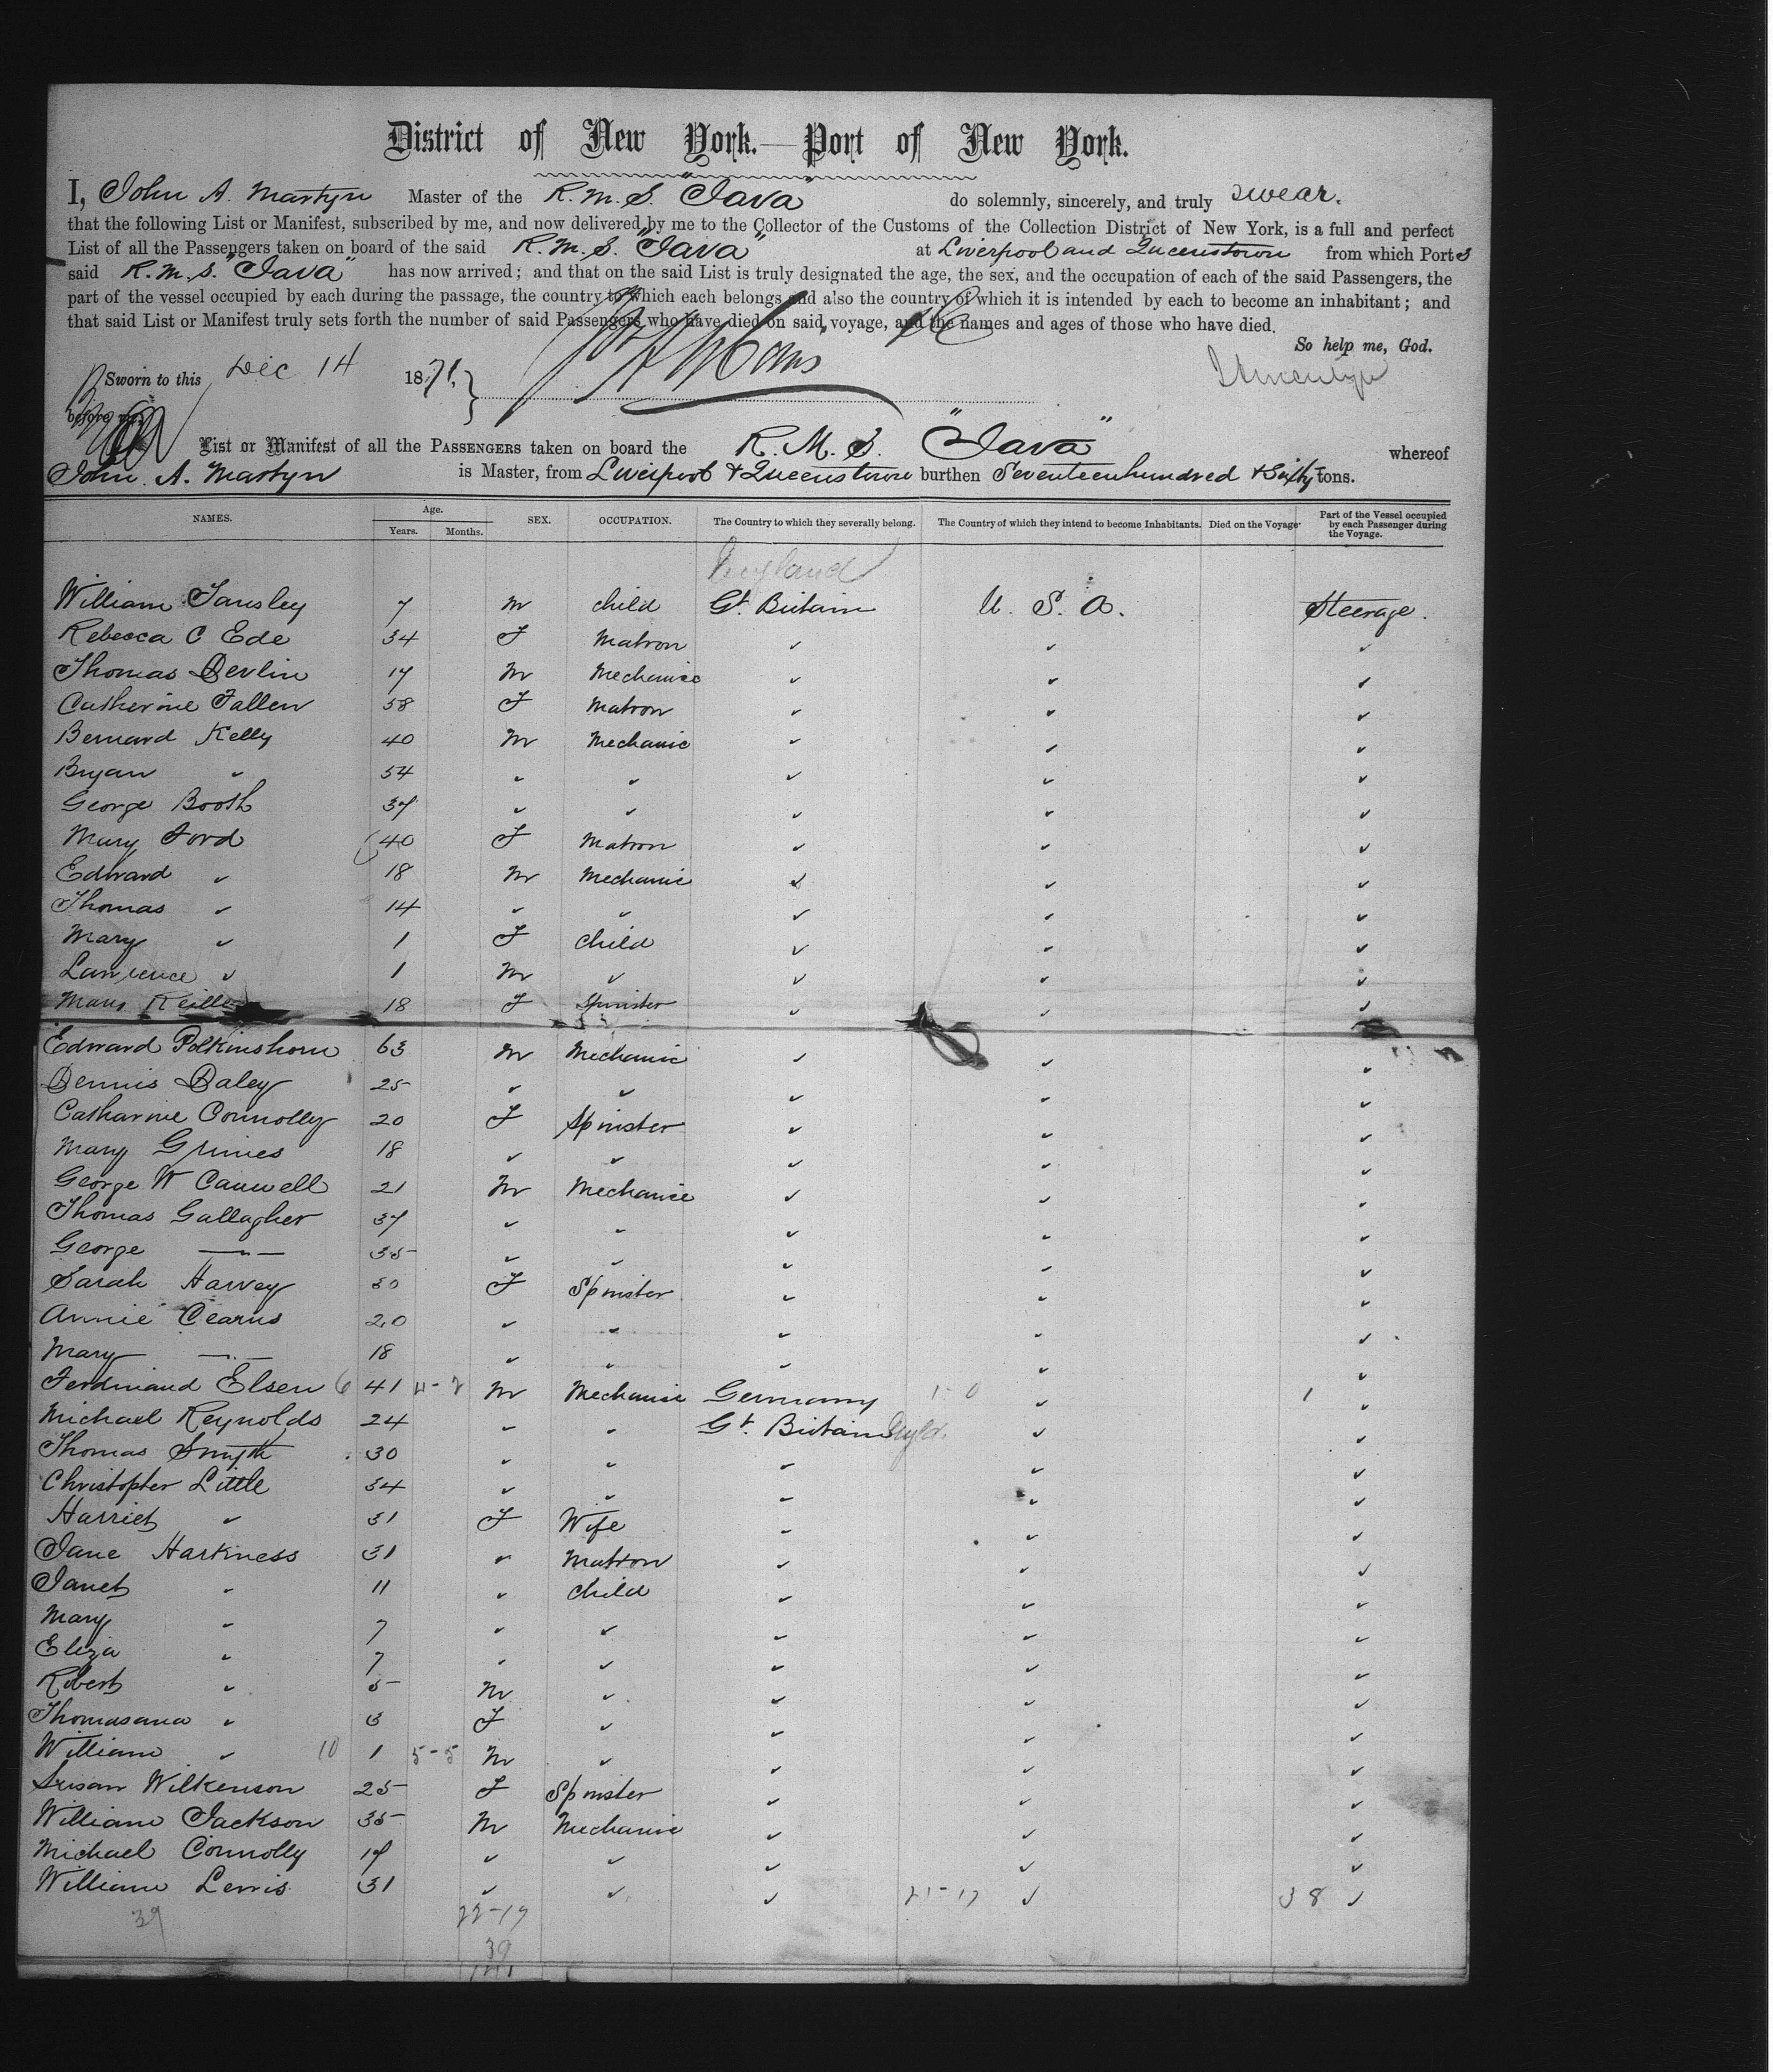 District of New York.—Port of New York.
I, John A. Martyn Master of the R.M.S. "Java" do solemnly, sincerely, and truly swear.
that the following List or Manifest, subscribed by me, and now delivered by me to the Collector of the Customs of the Collection District of New York, is a full and perfect
List of all the Passengers taken on board of the said R.M.S. "Java" at Liverpool and Queenstown from which Ports
said R.M.S. "Java" has now arrived; and that on the said List is truly designated the age, the sex, and the occupation of each of the said Passengers, the
part of the vessel occupied by each during the passage, the country to which each belongs and also the country of which it is intended by each to become an inhabitant; and
that said List or Manifest truly sets forth the number of said Passengers who have died on said voyage, and the names and ages of those who have died.
So help me, God.
Sworn to this Dec 14 1871,
before me
List or Manifest of all the PASSENGERS taken on board the R. M. S. "Java" whereof
John. A. Martyn is Master, from Liverpool & Queenstown burthen Seventeenhundred & Sixty tons.
NAMES. Age. Years. Months. SEX. OCCUPATION. The Country to which they severally belong. The Country of which they intend to become Inhabitants. Died on the Voyage. Part of the Vessel occupied by each Passenger during the Voyage.
England
William Tansley 7 M child Gt. Britain U. S. A. Steerage.
Rebecca C Ede 34 F Matron ✓ ✓ ✓
Thomas Devlin 17 M Mechanic ✓ ✓ ✓
Catherine Fallen 58 F Matron ✓ ✓ ✓
Bernard Kelly 40 M Mechanic ✓ ✓ ✓
Bryan ✓ 54 ✓ ✓ ✓ ✓ ✓
George Booth 37 ✓ ✓ ✓ ✓ ✓
Mary Ford 40 F Matron ✓ ✓ ✓
Edward ✓ 18 M Mechanic ✓ ✓ ✓
Thomas ✓ 14 ✓ ✓ ✓ ✓ ✓
Mary ✓ 1 F Child ✓ ✓ ✓
Lawrence ✓ 1 M ✓ ✓ ✓ ✓
Mary Reilly 18 F Spinster ✓ ✓ ✓
Edward Polkinshorn 63 M Mechanic ✓ ✓ ✓
Dennis Daley 25 ✓ ✓ ✓ ✓ ✓
Catharine Connolly 20 F Spinster ✓ ✓ ✓
Mary Grimes 18 ✓ ✓ ✓ ✓ ✓
George W Cauwell 21 M Mechanic ✓ ✓ ✓
Thomas Gallagher 37 ✓ ✓ ✓ ✓ ✓
George —"— 35 ✓ ✓ ✓ ✓ ✓
Sarah Harvey 30 F Spinster ✓ ✓ ✓
Annie Cearns 20 ✓ ✓ ✓ ✓ ✓
Mary —"— 18 ✓ ✓ ✓ ✓ ✓
Ferdinand Elsen 6 41 11-2 M Mechanic Germany 1-0 ✓ 1 ✓
Michael Reynolds 24 ✓ ✓ Gt. Britain Engld. ✓ ✓
Thomas Smyth 30 ✓ ✓ ✓ ✓ ✓
Christopher Little 34 ✓ ✓ ✓ ✓ ✓
Harriet ✓ 31 F Wife ✓ ✓ ✓
Jane Harkness 31 ✓ Matron ✓ ✓ ✓
Janet ✓ 11 ✓ Child ✓ ✓ ✓
Mary ✓ 7 ✓ ✓ ✓ ✓ ✓
Eliza ✓ 7 ✓ ✓ ✓ ✓ ✓
Robert ✓ 5 M ✓ ✓ ✓ ✓
Thomasana ✓ 3 F ✓ ✓ ✓ ✓
William ✓ 10 1 5-5 M ✓ ✓ ✓ ✓
Susan Wilkenson 25 F Spinster ✓ ✓ ✓
William Jackson 35 M Mechanic ✓ ✓ ✓
Michael Connolly 17 ✓ ✓ ✓ ✓ ✓
William Lewis 31 ✓ ✓ ✓ 21-17 ✓ 38 ✓
39 22-17
39